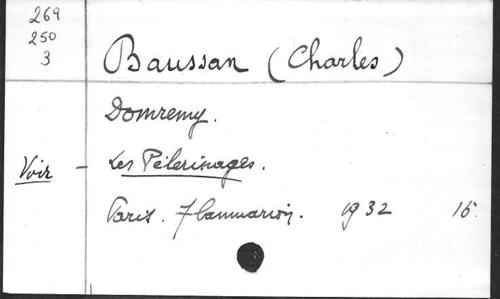 269
250
3
Baussan (Charles)
Domremy.
Voir - Les Pèlerinages.
Paris. Flammarion. 1932 16